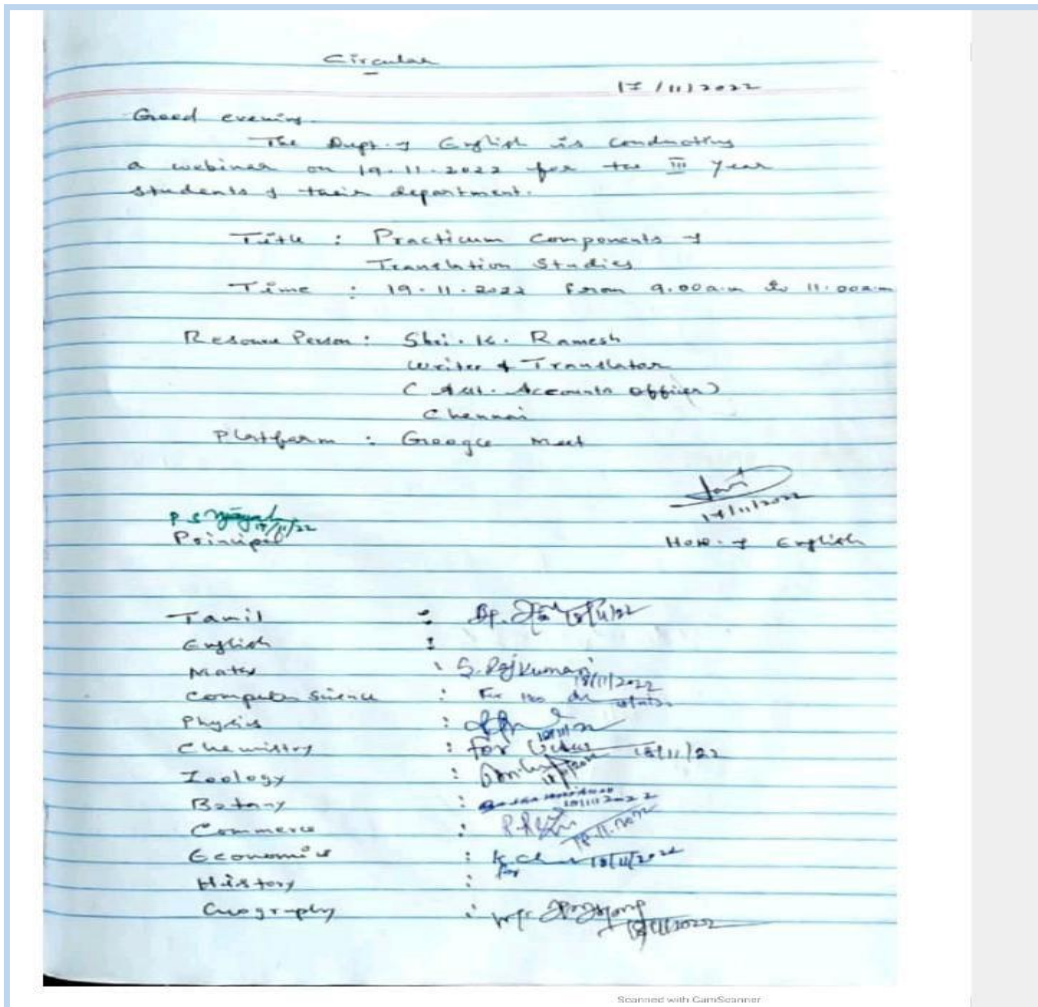 Circular
17/11/2022
Good evening.
The Dept. of English is conducting
a webinar on 19.11.2022 for the III Year
students of their department.
Title : Practicum Components of
Translation Studies
Time : 19.11.2022 From 9.00a.m to 11.00a.m
Resource Person : Shri. K. Ramesh
Writer & Translator
(Asst. Accounts Officer)
Chennai
Platform : Google Meet
17/11/2022
P. S
/11/22
Principal
HOD. of English
Tamil : 18/11/22
English :
Maths : S. Rajkumari
18/11/2022
Computer Science : For
Physics :
Chemistry : for 18/11/22
Zoology :
Botany : 18/11/2022
Commerce : 18.11.2022
Economics : 18/11/2022
History : for
Geography : 18/11/2022
Scanned with CamScanner